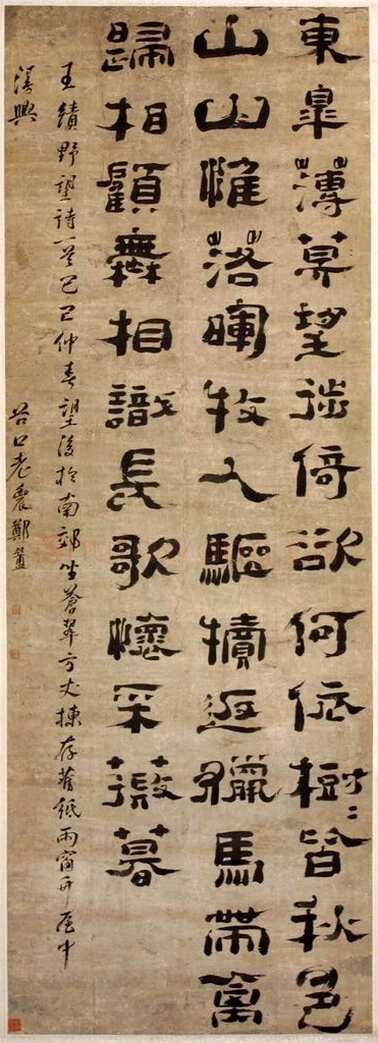 東皐薄莫望徙倚欲何依樹二皆秋色
山山惟落暉牧人驅犢返獵馬帶禽
歸相顧無相識長歌懷采薇暮
王績野望詩一首己巳仲春望後於南郊坐蒼翠方丈揀存舊紙雨窗中
漫興
谷口老農鄭簠